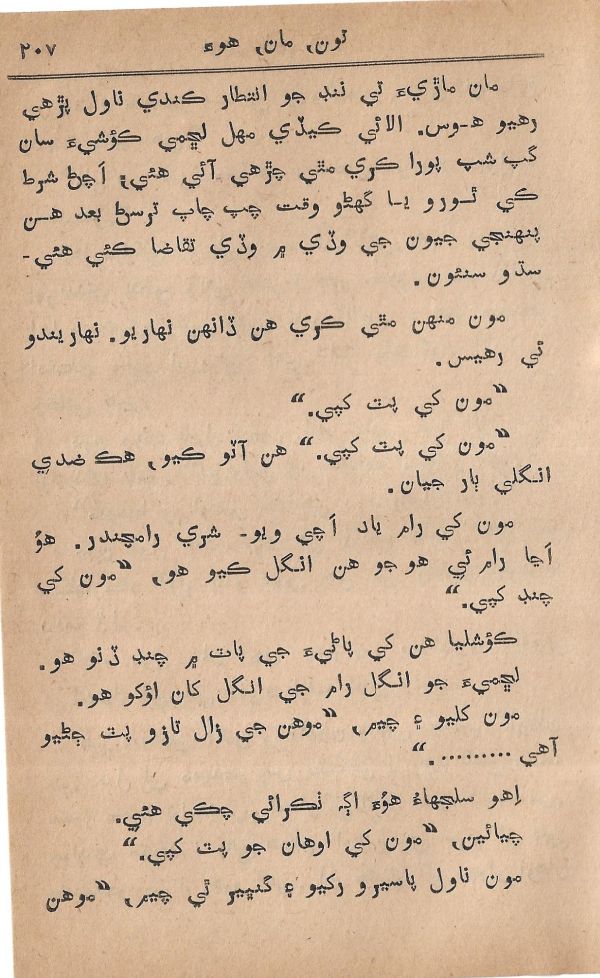 تون, مان, هوءَ ۲۰۷
مان ماڙيءَ تي ننڊ جو انتظار ڪندي ناول پڙهي
رهيو هـوس. الائي ڪيڏي مهل لڇمي ڪؤشيءَ سان
گپ شپ پورا ڪري مٿي چڙهي آئي هئي؛ اَچڻ شرط
ڪي ٿـورو يـا گهڻو وقت چپ چاپ ترسڻ بعد هـن
پنهنجي جيون جي وڏي ۾ وڏي تقاضا ڪئي هئي-
سڌو سنئون.
مون منهن مٿي ڪري هن ڏانهن نهاريو. نهاريندو
ئي رهيس.
”مون کي پٽ کپي.“
”مون کي پٽ کپي.“ هن آٽو ڪيو, هڪ ضدي
انگلي ٻار جيان.
مون کي رام ياد اَچي ويو- شري رامچندر. هوُ
اَڃا رام ئي هو جو هن انگل ڪيو هو, ”مون کي
چنڊ کپي.“
ڪؤشليا هن کي پاڻيءَ جي پاٽ ۾ چنڊ ڏنو هو.
لڇميءَ جو انگل رام جي انگل کان اؤکو هو.
مون کليو ۽ چيم, ”موهن جي زال تازو پٽ ڄڻيو
آهي .........“
اِهو سلجهاءُ هوُءَ اڳہ ٺڪرائي چڪي هئي.
چيائين, ”مون کي اوهان جو پٽ کپي.“
مون ناول پاسيرو رکيو ۽ گنڀير ٿي چيم, ”موهن